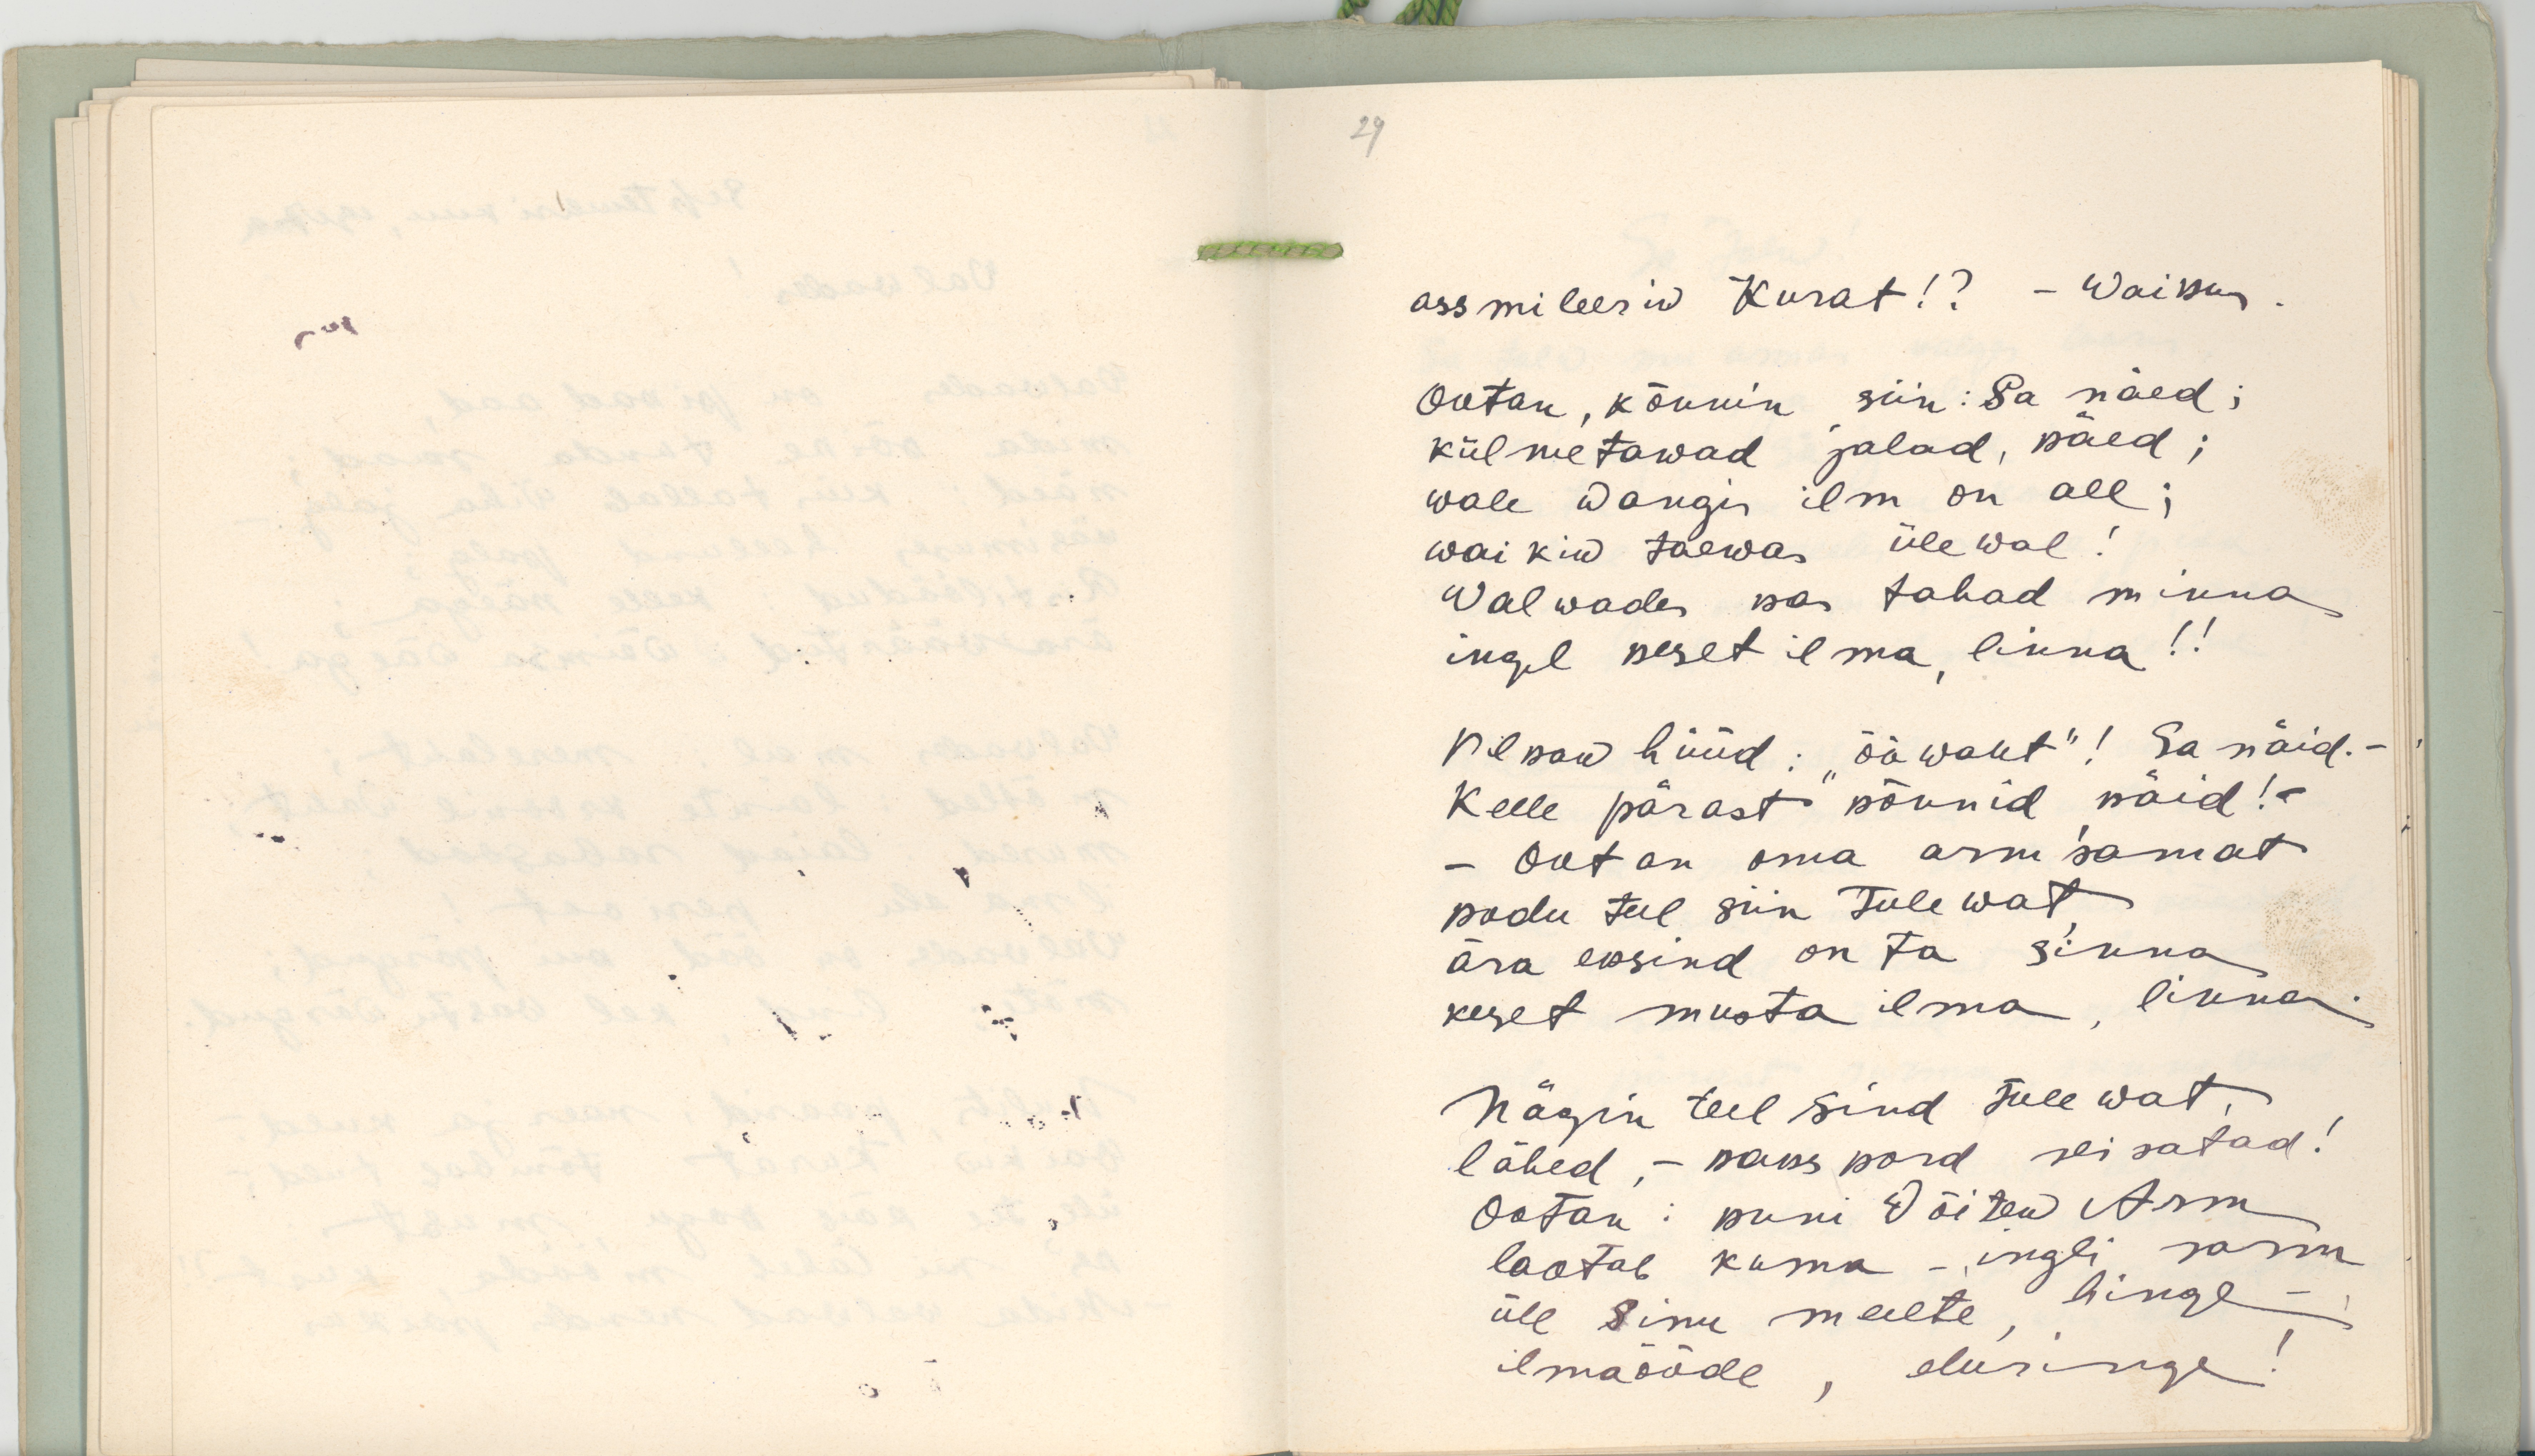 29
assmileeriw Kurat!? - Waikus.
Ootan, kõnnin siin: Sa näed;
külmetawad jalad, käed;
wale wangis ilm on all;
waikiw taewas ülewal!
Walwades kas tahad minna
ingel keset ilma, linna!!
Pilkaw hüüd: „öö waht"! Sa näid.-
Kelle pärast kõnnid, käid!-
- Ootan oma arm'samat
kodu teel siin Tulewat
ära eksind on ta sinna
keset musta ilma, linna.
Nägin teel sind tulewat,
lähed, - kaks kord seisatad!
Ootan: kuni Wõitew Arm
laotab kuma - ingli sarm
üle Sinu meelte, hinge -
ilmaööde, eluringe!